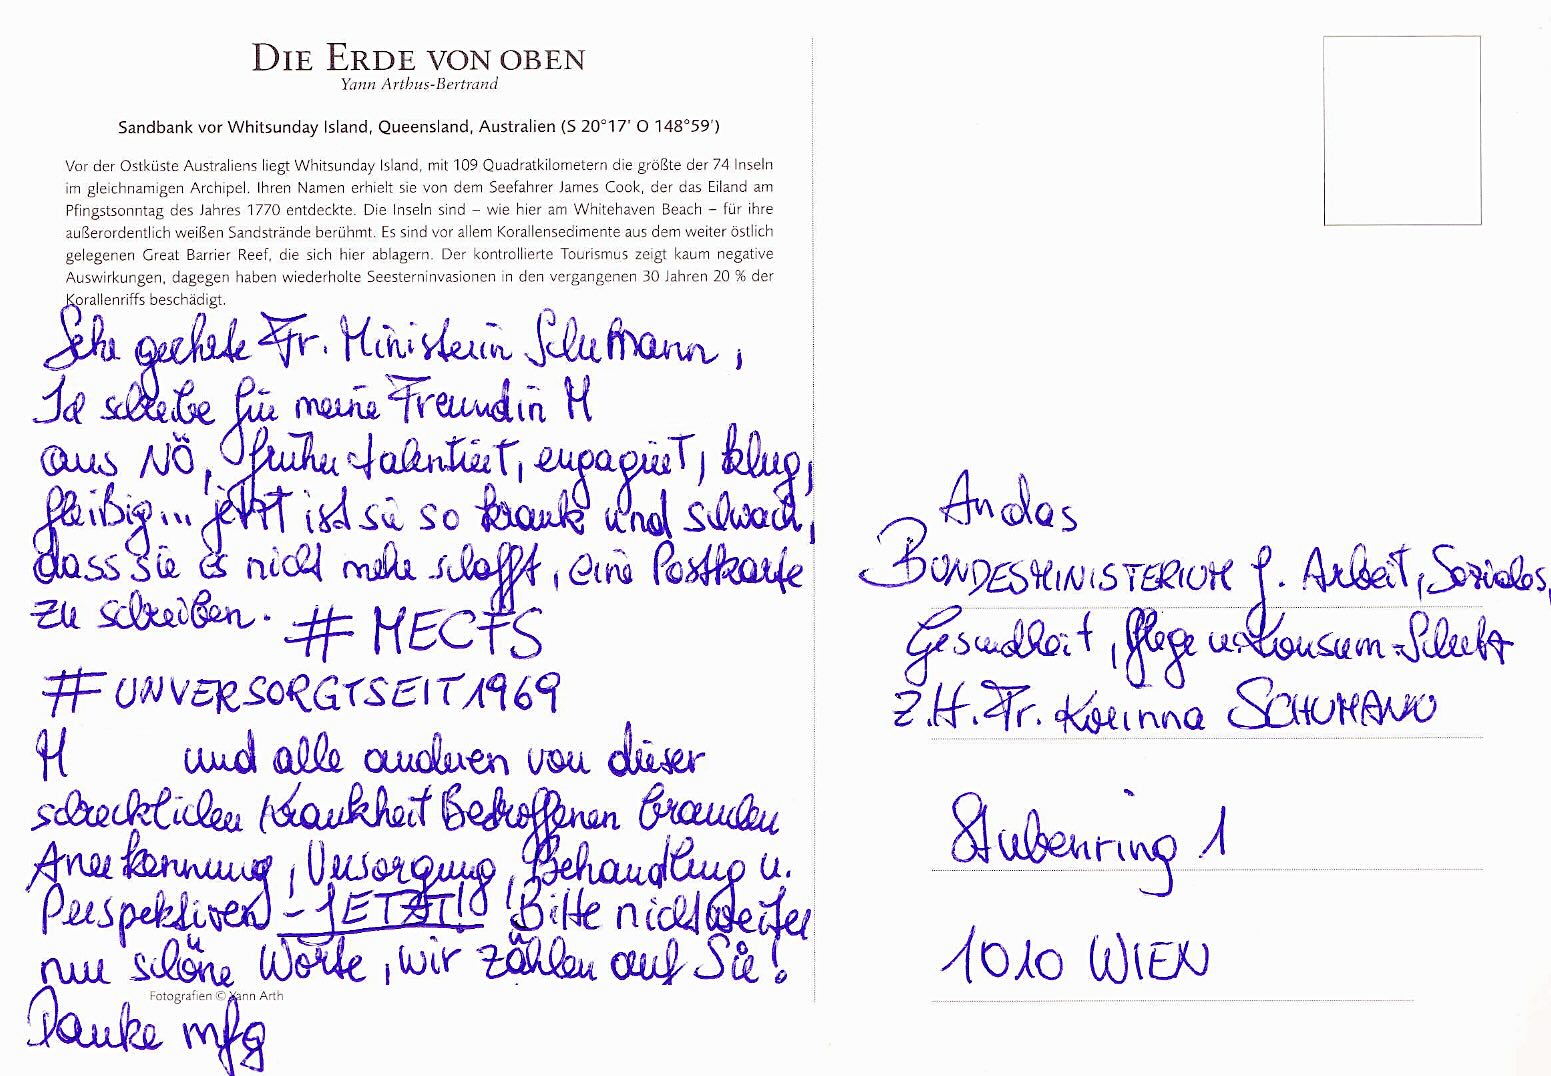 DIE ERDE VON OBEN
Yann Arthus-Bertrand
Sandbank vor Whitsunday Island, Queensland, Australien (S 20°17' O 148°59')
Vor der Ostküste Australiens liegt Whitsunday Island, mit 109 Quadratkilometern die größte der 74 Inseln
im gleichnamigen Archipel. Ihren Namen erhielt sie von dem Seefahrer James Cook, der das Eiland am
Pfingstsonntag des Jahres 1770 entdeckte. Die Inseln sind – wie hier am Whitehaven Beach – für ihre
außerordentlich weißen Sandstrände berühmt. Es sind vor allem Korallensedimente aus dem weiter östlich
gelegenen Great Barrier Reef, die sich hier ablagern. Der kontrollierte Tourismus zeigt kaum negative
Auswirkungen, dagegen haben wiederholte Seesterninvasionen in den vergangenen 30 Jahren 20 % der
Korallenriffs beschädigt.
Sehr geehrte Fr. Ministerin Schumann,
Ich schreibe für meine Freundin M
aus NÖ, früher talentiert, engagiert, klug,
fleißig... jetzt ist sie so krank und schwach,
dass sie es nicht mehr schafft, eine Postkarte
zu schreiben. #MECFS
#UNVERSORGTSEIT1969
M und alle anderen von dieser
schrecklichen Krankheit Betroffenen brauchen
Anerkennung, Versorgung, Behandlung u.
Perspektiven – JETZT! Bitte nicht weiter
nur schöne Worte, wir zählen auf Sie!
Fotografien © Yann Arth
Danke mfg
An das
BUNDESMINISTERIUM f. Arbeit, Soziales,
Gesundheit, Pflege u. Konsum-Schutz
z.H. Fr. Korinna SCHUMANN
Stubenring 1
1010 WIEN